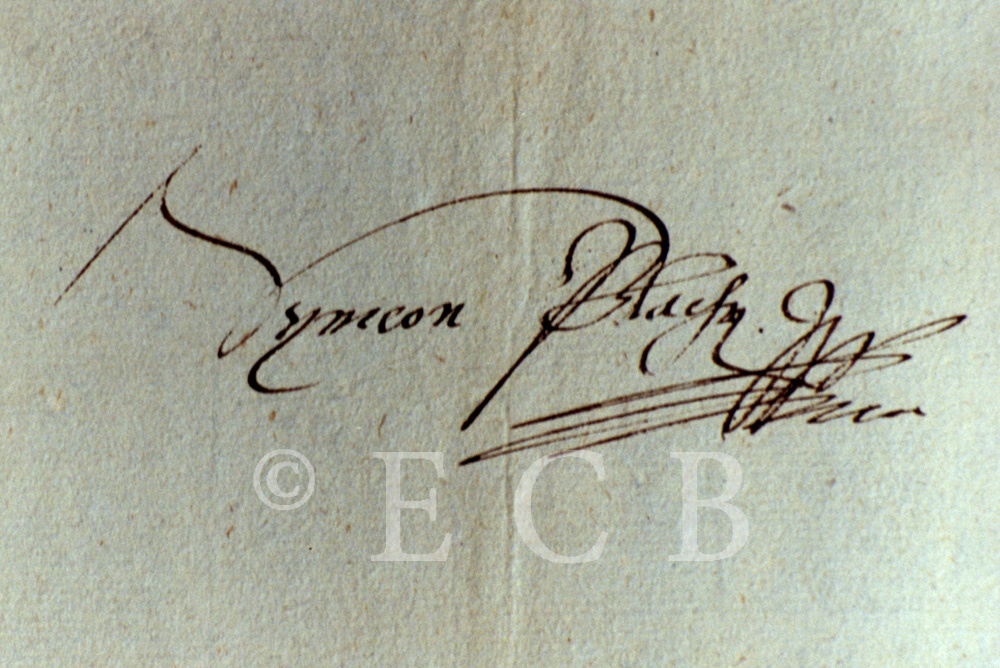 Symeon Plachy
© E C B